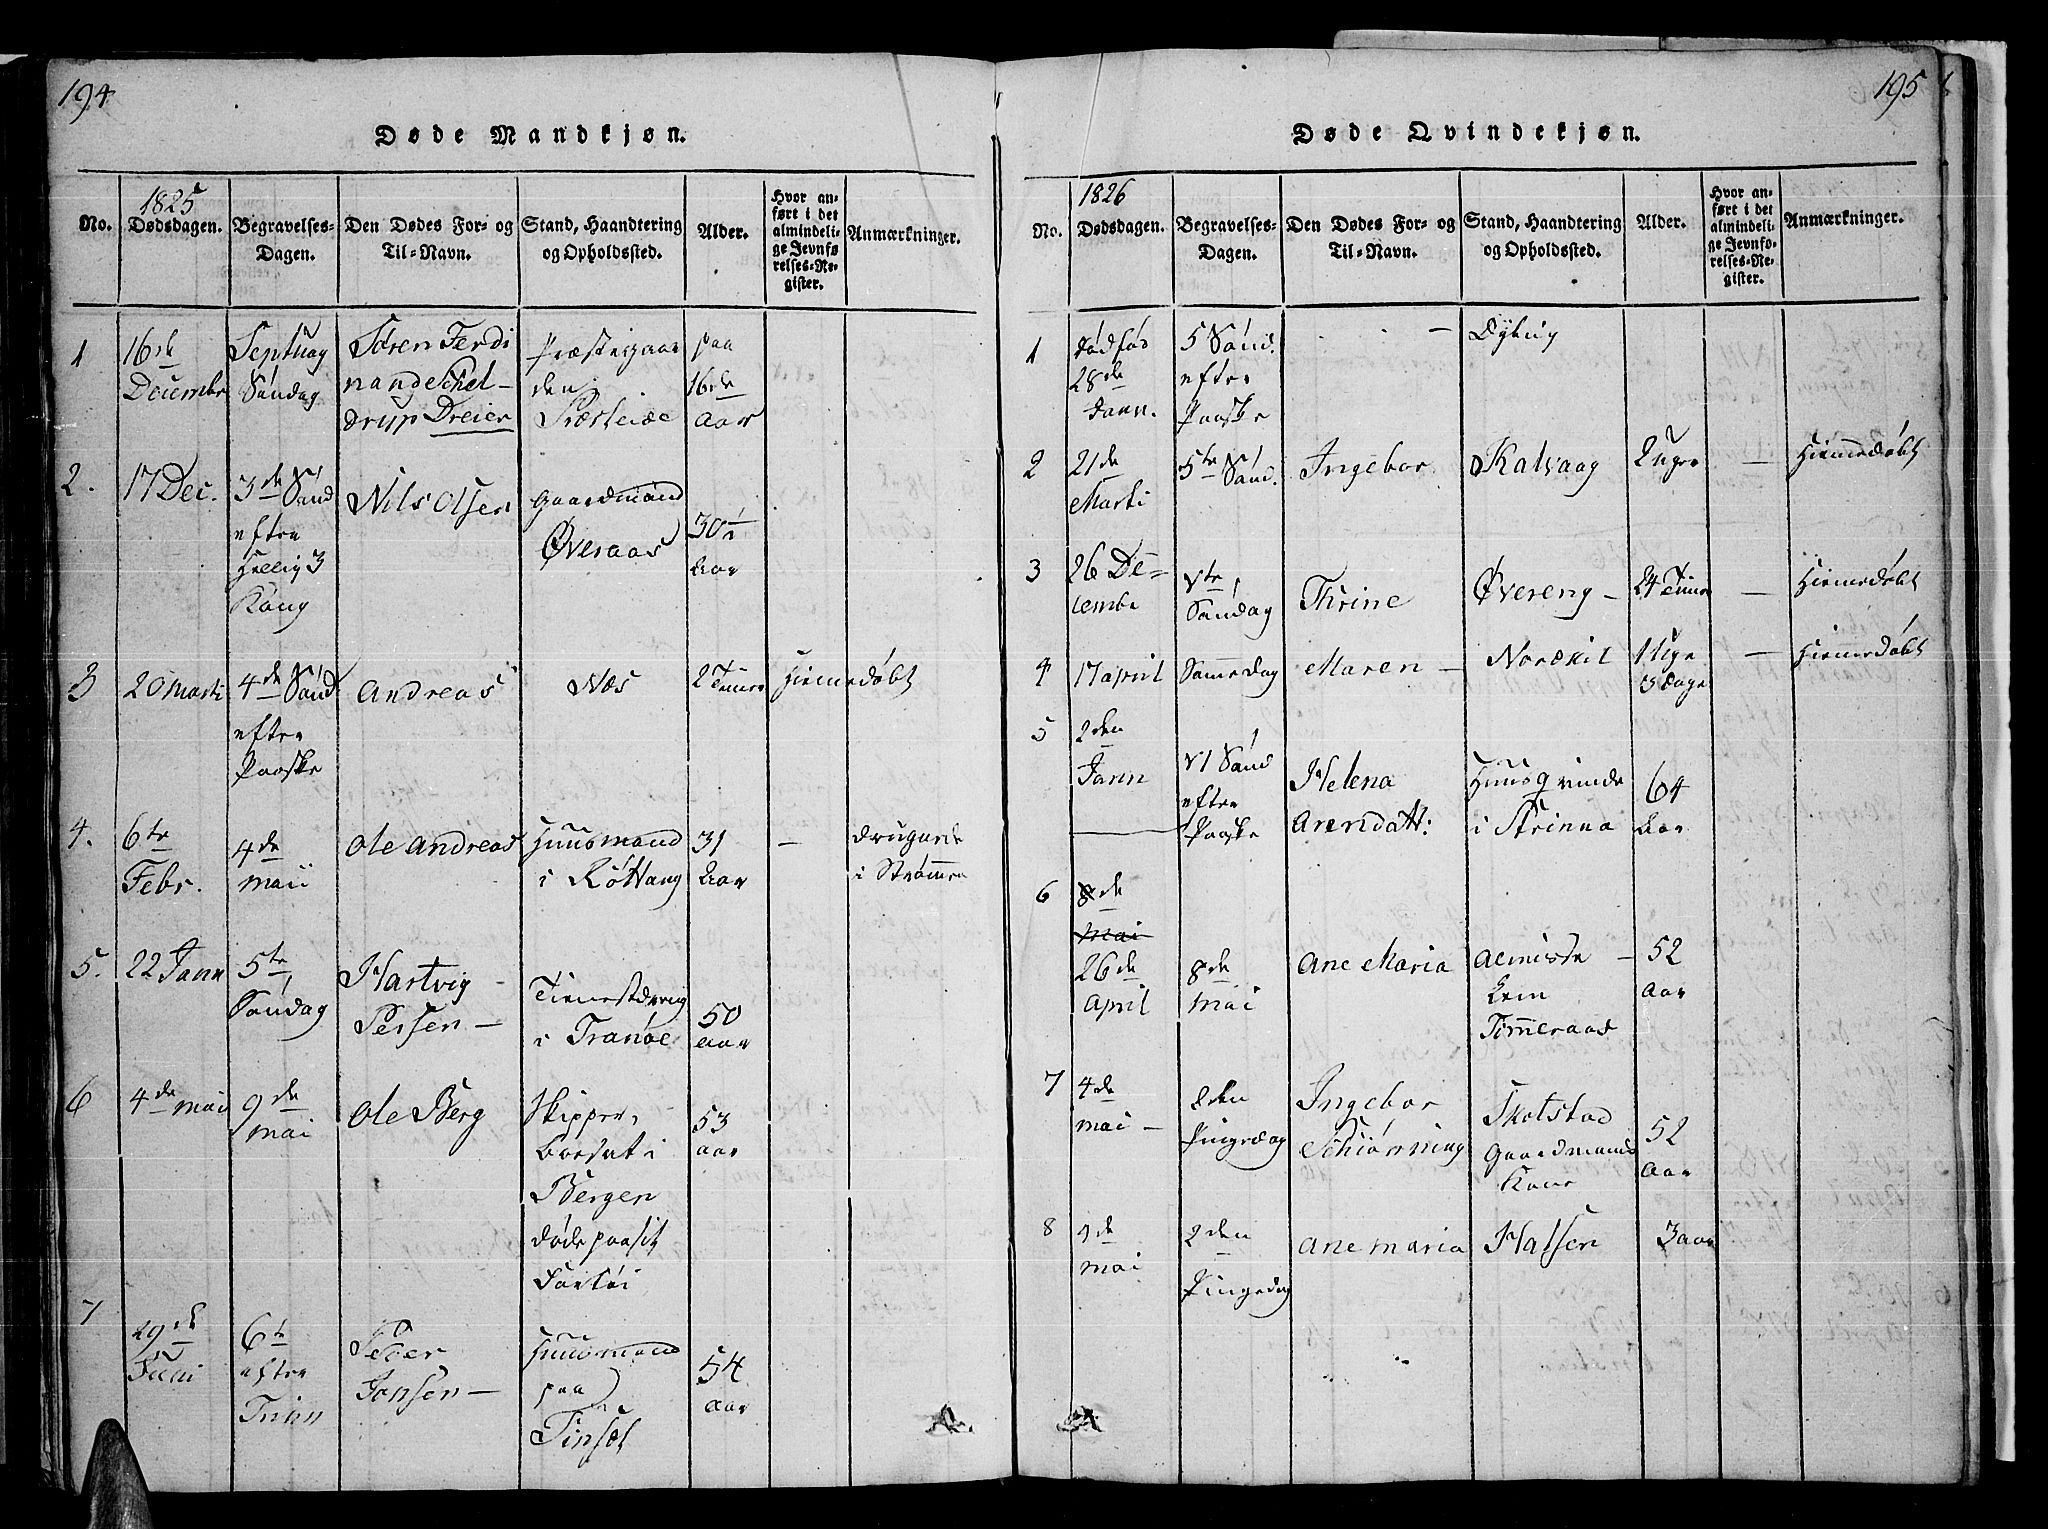 194
Døde Mandkjøn.
No.
1825
Dødsdagen.
Begravelses-
Dagen.
Den Dødes For- og
Til-Navn.
Stand, Haandtering
og Opholdssted.
Alder.
Hvor an-
ført i det
almindeli-
ge Jevnfø-
relses-Re-
gister.
Anmærkninger.
1
16de
Decembr
Septuag
Søndag
Søren Ferdi
nand Schel-
drup Dreier
Præstegaar
den
paa
16de
Aar
2.
17 Dec.
3de Sønd
efter
Hellig 3
Kong
Nils Olsen
Gaardmand
Øveraas
30
Aar
3
20 Marti
4de Sønd
efter
Paaske
Andreas
Næs
2 Timer
Hiemedøbt
4.
6te
Febr.
4de
Maii
Ole Andreas
Huusmand
i Røttang
31
Aar
-
Drugnede
i Strømmen
5.
22 Jann
5te
Søndag
Hartvig
Persen -
Tienestdreng
i Tranøe
50
Aar
6
4de Mai
9de
Mai
Ole Berg
Skipper,
Borsat i
Bergen
døde paa sit
Fartøi
53
aar
7
29de
Juni
6te
efter
Trin
Peder
Jonsen -
Huusmand
paa
Finsæt
54
Aar
195
Døde Qvindekjøn.
No.
1826
Dødsdagen.
Begravelses-
Dagen.
Den Dødes For- og
Til-Navn.
Stand, Haandtering
og Opholdssted.
Alder.
Hvor an-
ført i det
almindeli-
ge Jevnfø-
relses-Re-
gister.
Anmærkninger.
1
Dødfød
28de
Jann.
5 Sønd.
efter
Paaske
-
Dybvig
2
21de
Marti
5te Sønd.
Ingebor
Kalvaag
2 Uger
-
Hiemedøbt
3
26 De-
cembr
Søndag
Thrine
Øvereng -
24 Timer
-
Hiemedøbt
4
17 april
Samedag
Maren -
Nordkil
1 Uge
3 Dage
-
Hiemedøbt
5
2den
Jann
VI Sønd
efter
Paaske
Helena
Arendatt:
Huusqvinde
i Strinna
64
Aar
6
8de
Mai
26de
April
8de
Mai
Ane Maria
Almisse -
Lem
Timeraas
52
Aar
7
4de
mai -
2den
Pingsdag
Ingebor
Schiønning
Skotstad
Gaardmands
Kone
52
Aar
8
9de
mai
2den
Pingsdag
Ane Maria
Halsen
3 aar